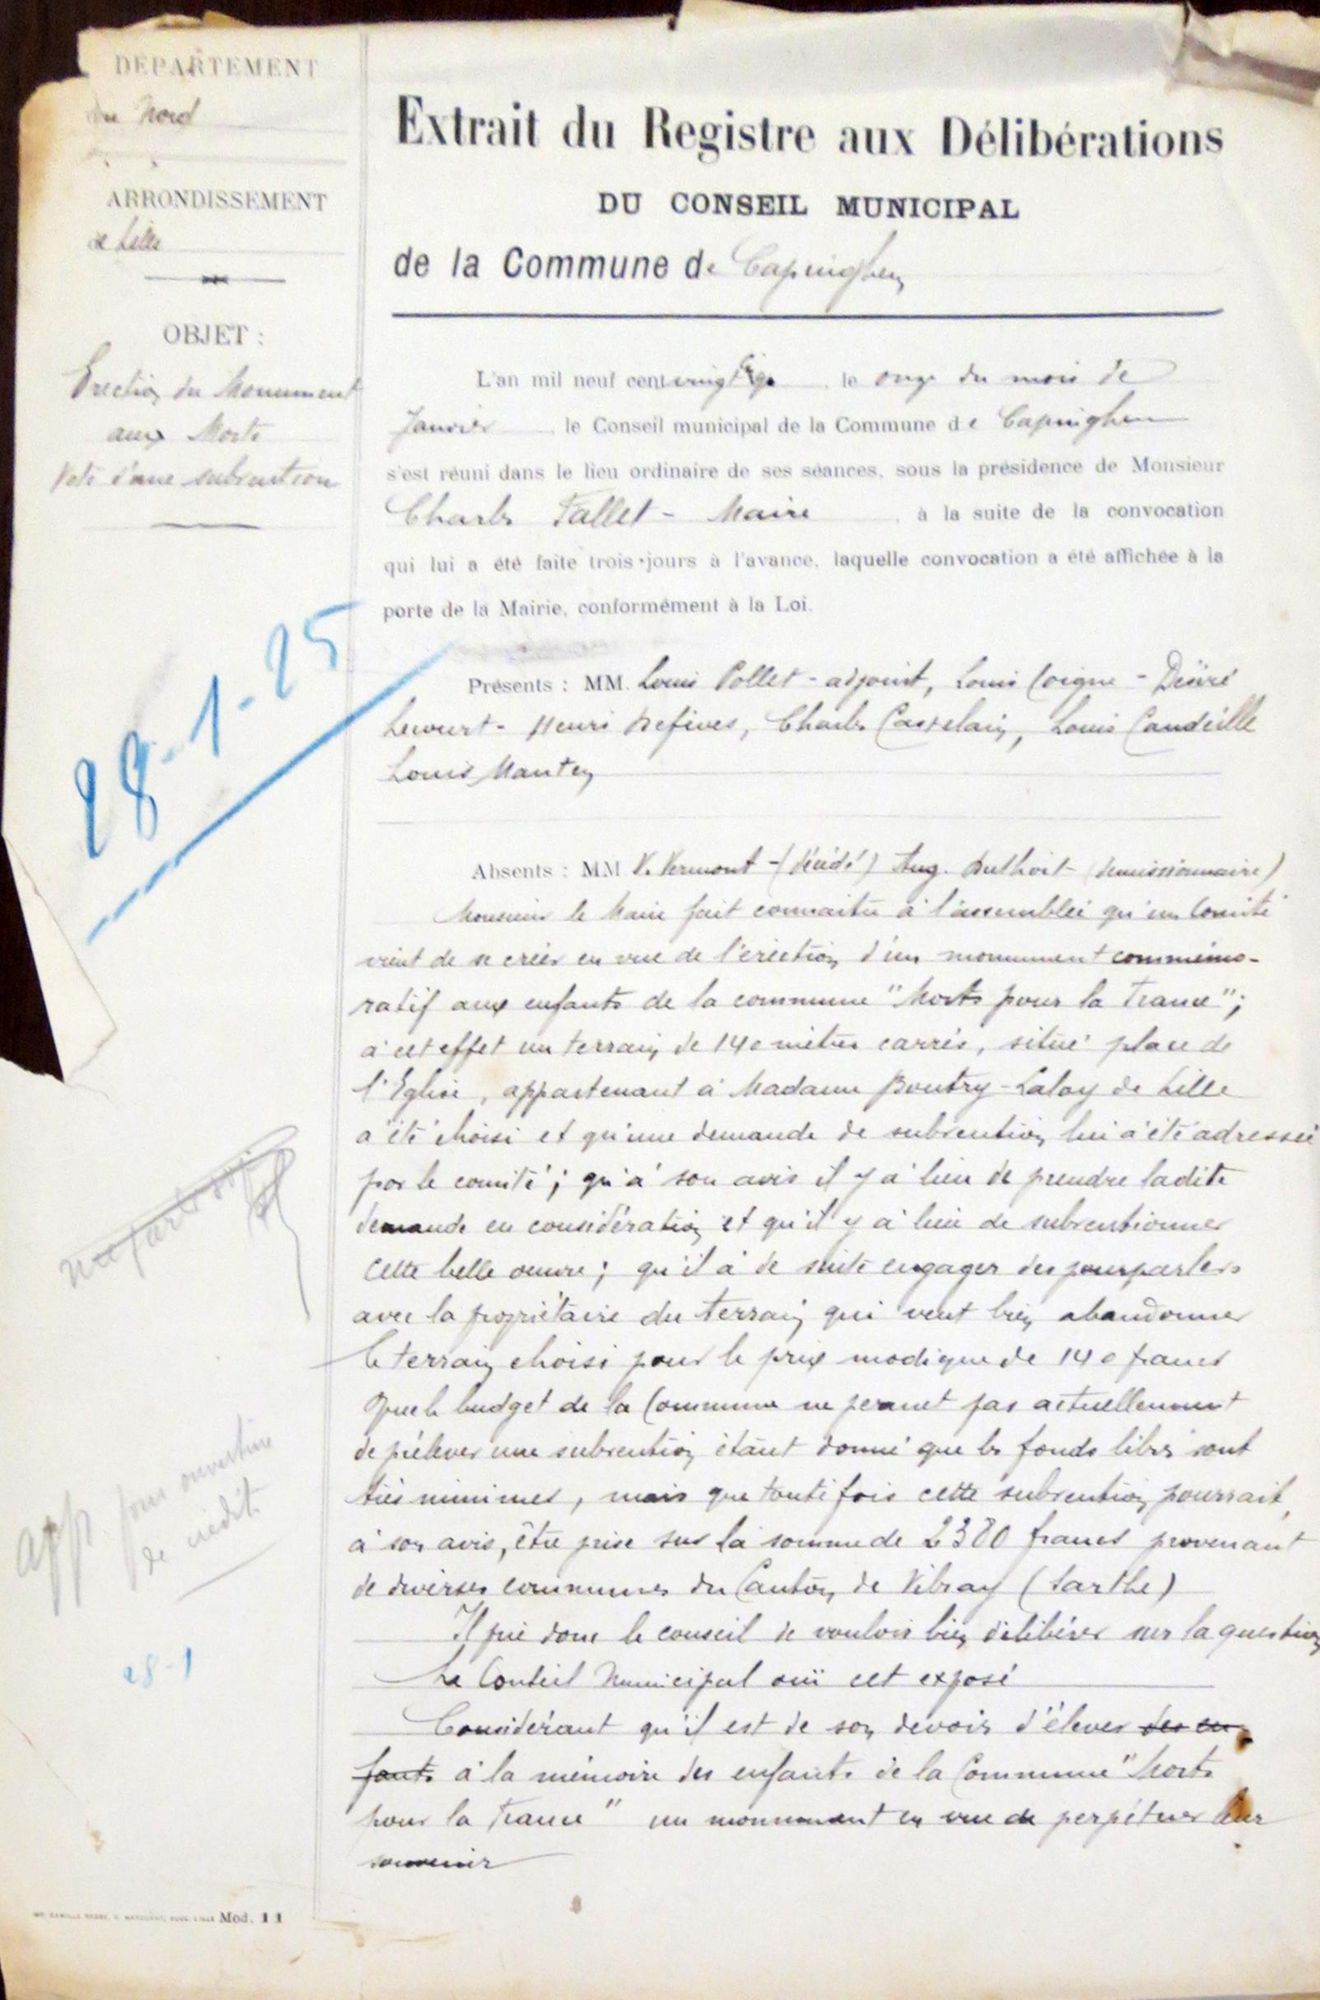 DEPARTEMENT
du Nord
ARRONDISSEMENT
de Lille
OBJET :
Erection du Monument
aux Morts
Vote d'une subvention
28-1-25
app. pour ouverture
de crédit
28-1
Mod. 11
Extrait du Registre aux Délibérations
DU CONSEIL MUNICIPAL
de la Commune de Capinghem
L'an mil neuf cent vingt cinq, le onze du mois de
Janvier le Conseil municipal de la Commune de Capinghem
s'est réuni dans le lieu ordinaire de ses séances, sous la présidence de Monsieur
Charles Fallet - Maire, à la suite de la convocation
qui lui a été faite trois jours à l'avance, laquelle convocation a été affichée à la
porte de la Mairie, conformément à la Loi.
Présents : MM. Louis Pollet - adjoint, Louis Coigne - Désiré
Henri Defives, Charles Castelain, Louis Candeille
Louis
Absents : MM V. Vermont - (décédé) Aug. Duthoit (démissionnaire)
Monsieur le Maire fait connaitre à l'assemblée qu'un Comité
vient de se créer en vue de l'érection d'un monument commémo-
ratif aux enfants de la commune "Morts pour la France";
à cet effet un terrain de 140 mètres carrés, situé place de
l'Eglise, appartenant à Madame Boutry-Laloy de Lille
a été choisi et qu'une demande de subvention lui a été adressée
par le comité; qu'à son avis il y a lieu de prendre ladite
demande en considération et qu'il y a lieu de subventionner
cette belle oeuvre; qu'il a de suite engager des pourparlers
avec la propriétaire du terrain qui veut bien abandonner
le terrain choisi pour le prix modique de 140 francs
Que le budget de la Commune ne permet pas actuellement
de prélever une subvention étant donné que les fonds libres sont
très minimes, mais que toutefois cette subvention pourrait,
à son avis, être prise sur la somme de 2380 francs provenant
de diverses communes du Canton de Vibray (Sarthe)
Il prie donc le conseil de vouloir bien délibérer sur la question
Le Conseil Municipal ouï cet exposé
Considérant qu'il est de son devoir d'élever des en
fants à la mémoire des enfants de la Commune "Morts
pour la France" un monument en vue de perpétuer leur
souvenir